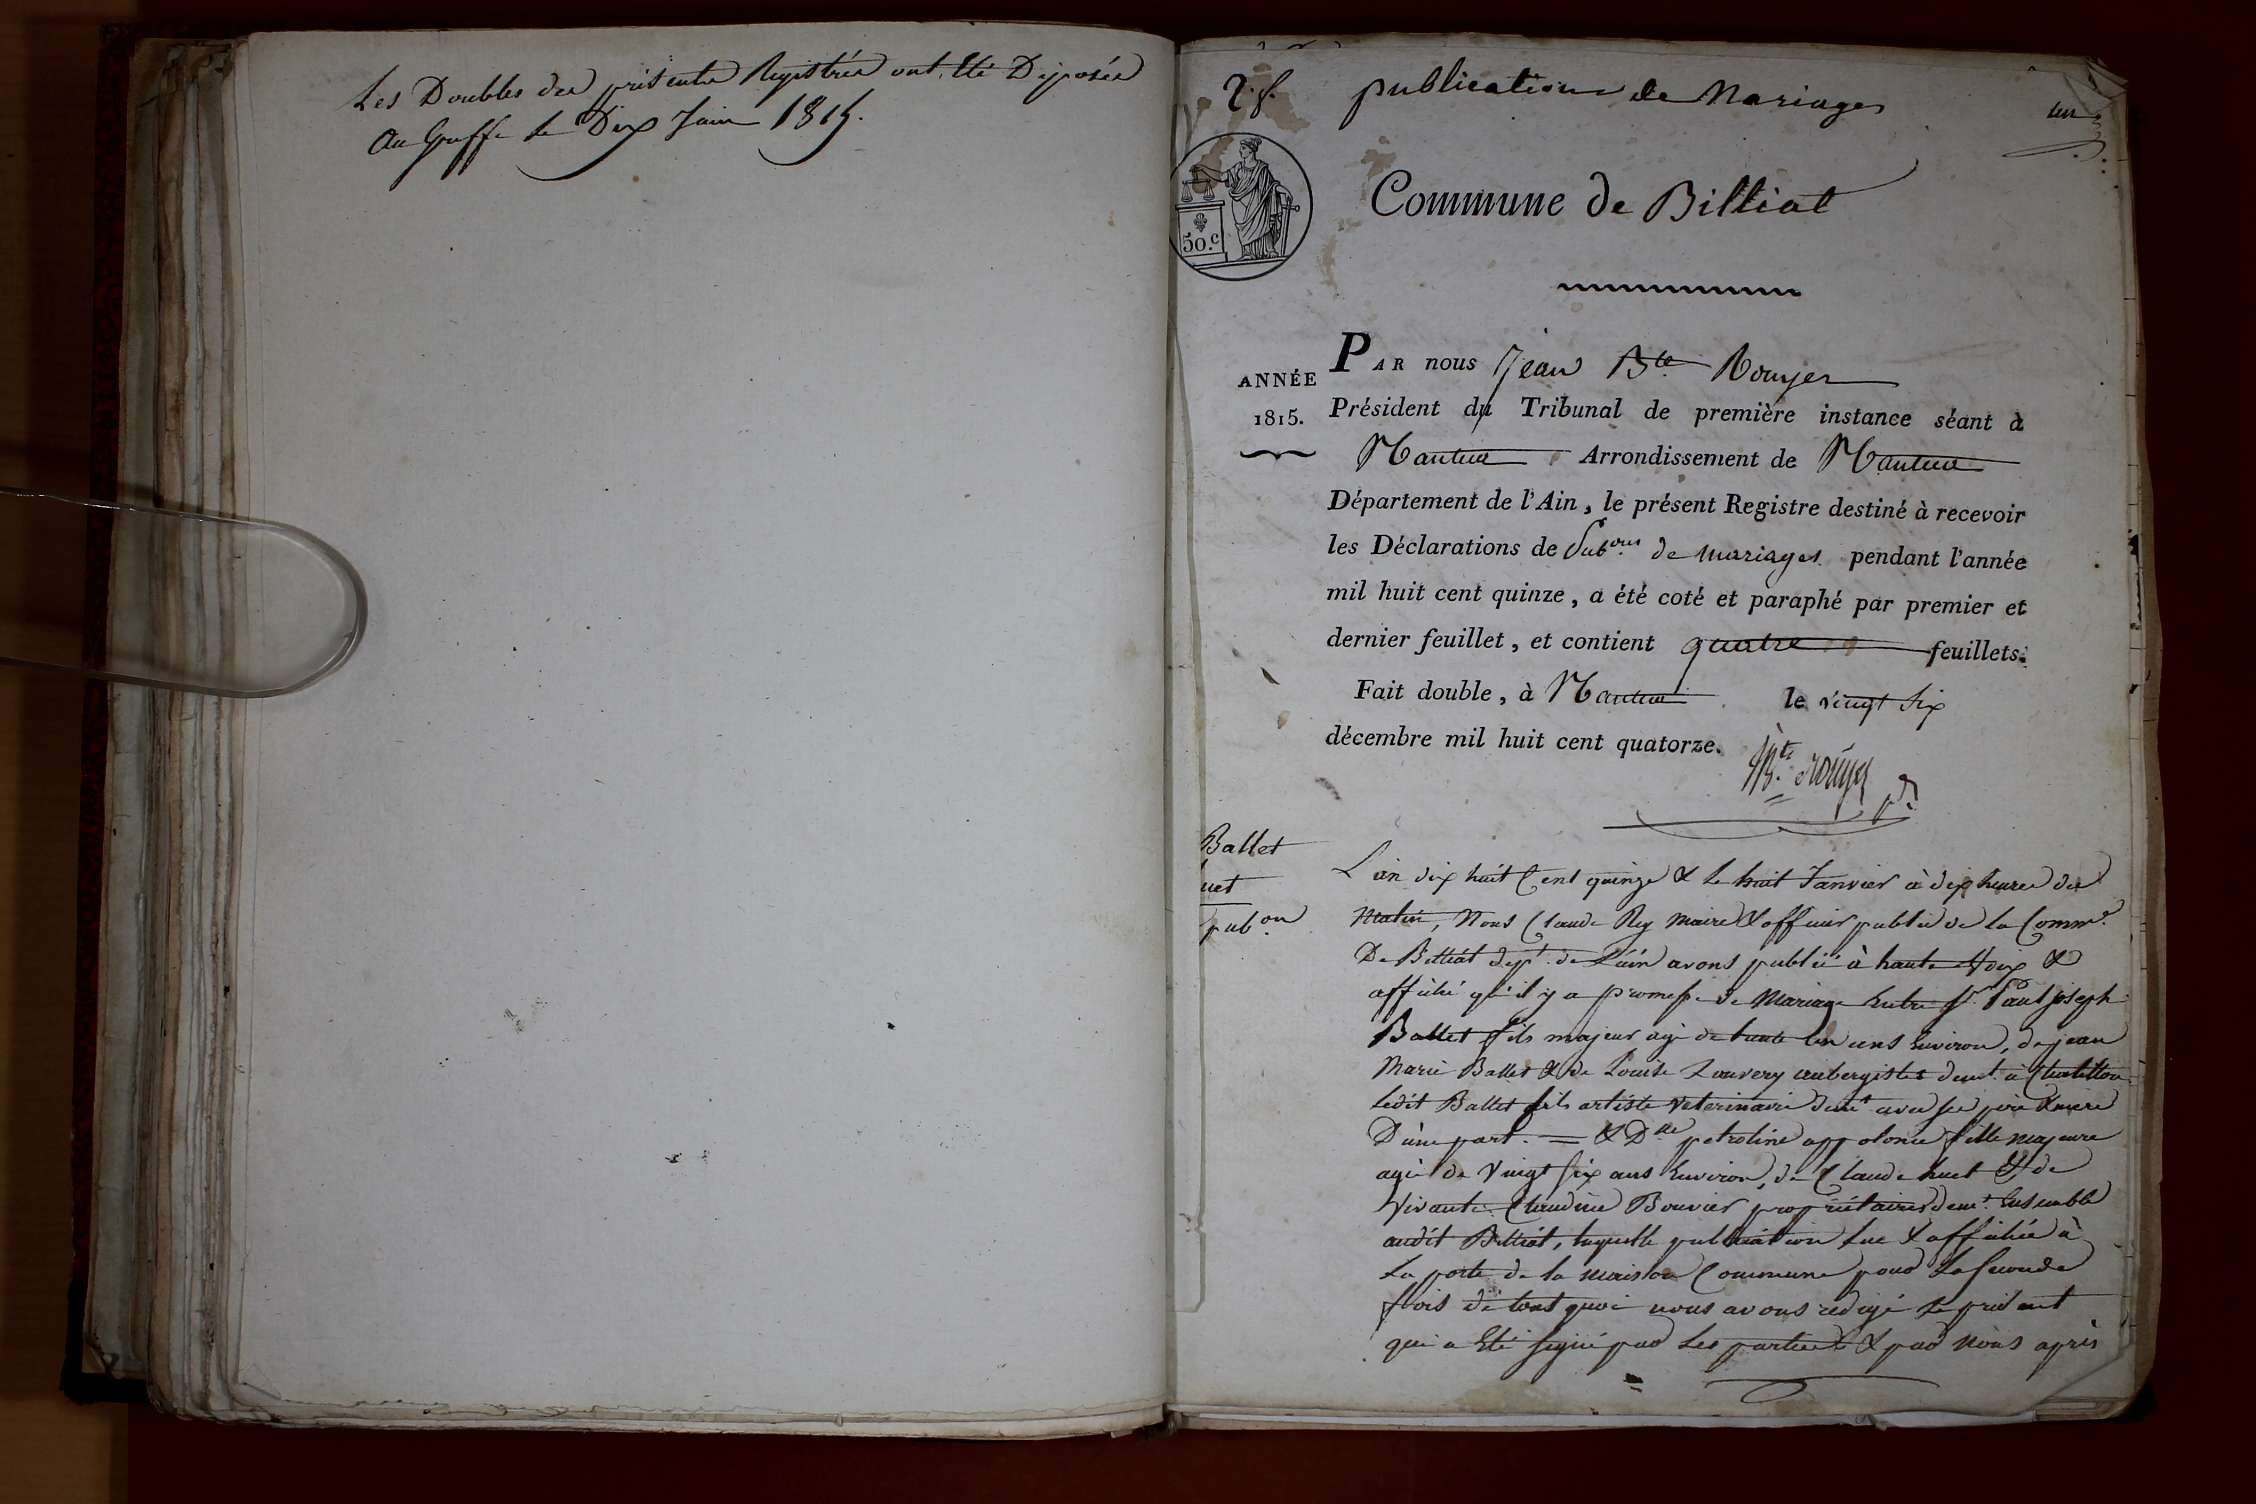 Les Doubles des présents Registres ont Eté Déposés
Au Greffe le Dix Juin 1815.
publications de Mariages
un
Commune de Billiat
50.c
ANNÉE
1815.
PAR nous Jean Bte Rouyer
Président du Tribunal de première instance séant à
Nantua Arrondissement de Nantua
Département de l'Ain, le présent Registre destiné à recevoir
les Déclarations de Pubons de mariages pendant l'année
mil huit cent quinze, a été coté et paraphé par premier et
dernier feuillet, et contient quatre feuillets.
Fait double, à Nantua le vingt six
décembre mil huit cent quatorze.
JBte Rouyer pdt
Ballet
uet
pubon
L'an dix huit Cent quinze & le huit Janvier à dix heures du
Matin, Nous Claude Rey Maire & officier public de la Comme
De Billiat dept de L'ain avons publié à haute Voix &
affiché qu'il y a promesse de Mariage Entre Sr Paul joseph
Ballet fils majeur agé de trente un ans Environ, de jean
Marie Ballet & de Louise Zouvery aubergistes demt à Chatillon
Ledit Ballet fils artiste veterinaire demt avec ses père & mere
D'une part = & Dlle petroline appolonie fille majeure
agée de Vingt six ans Environ, de Claude huet & de
Vivante Claudine Bouvier propriétaires demt Ensemble
audit Billiat, laquelle publication lue & affichée à
La porte de la maison Commune pour La seconde
fois de tout quoi nous avons redigé le présent
qui a Eté signé par Les parties & par Nous après